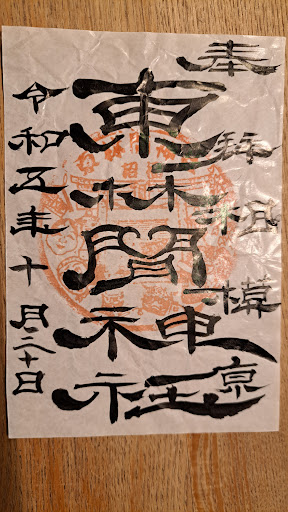 奉拝 相模原
東林間神社
令和五年十月二十日